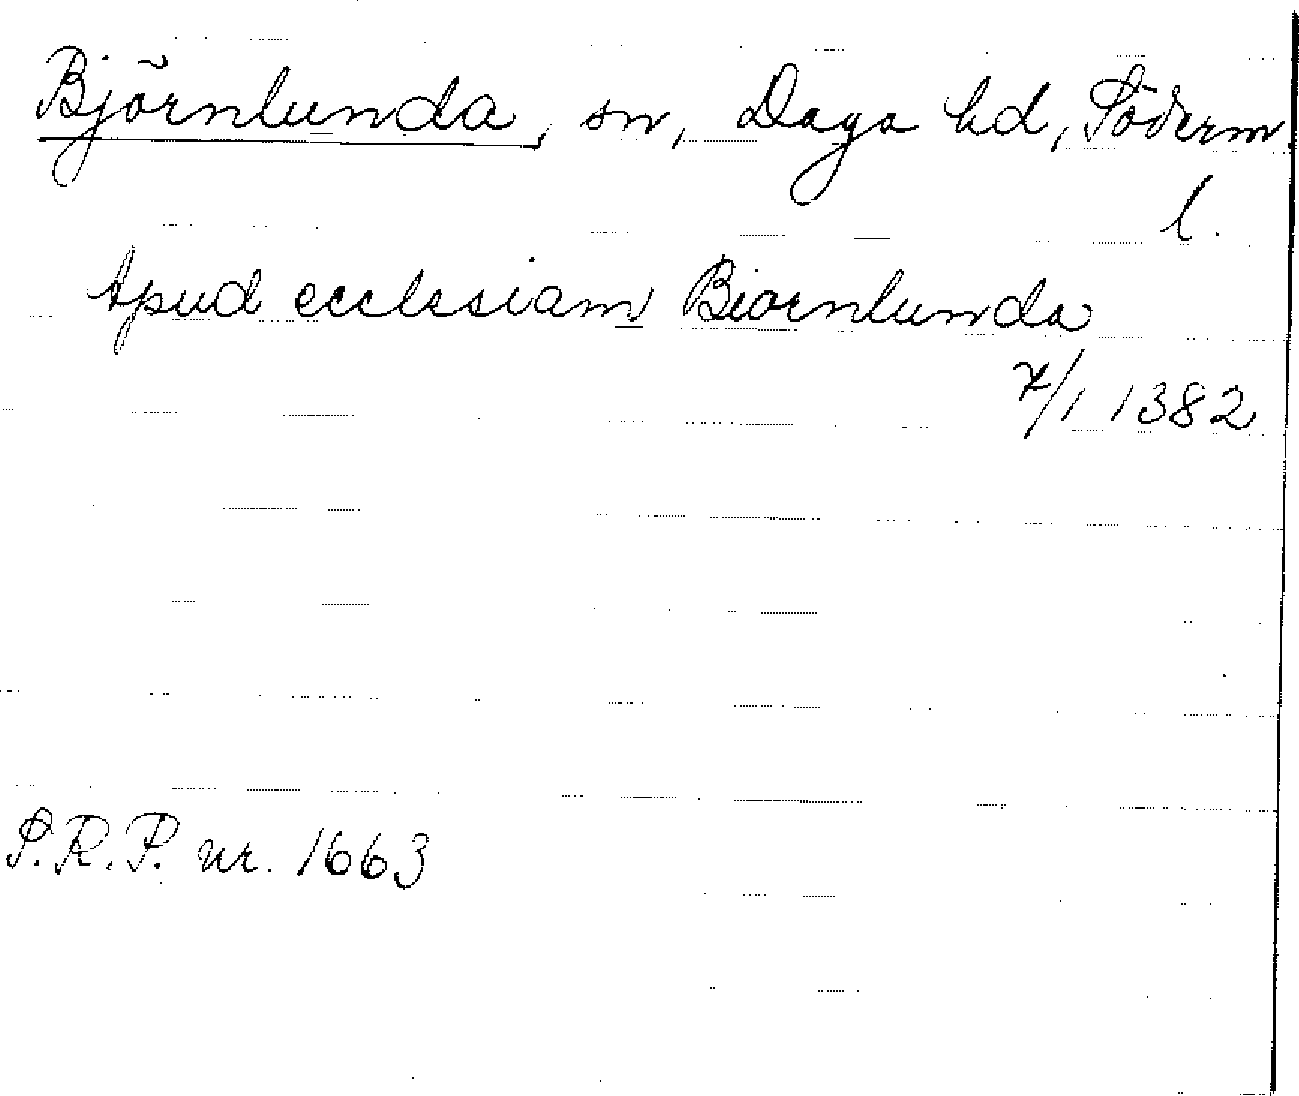 Björnlunda, sn, Daga hd, Söderm
l.
Apud ecclesiam Biornlunda
7/1 1382
S.R.P. nr. 1663